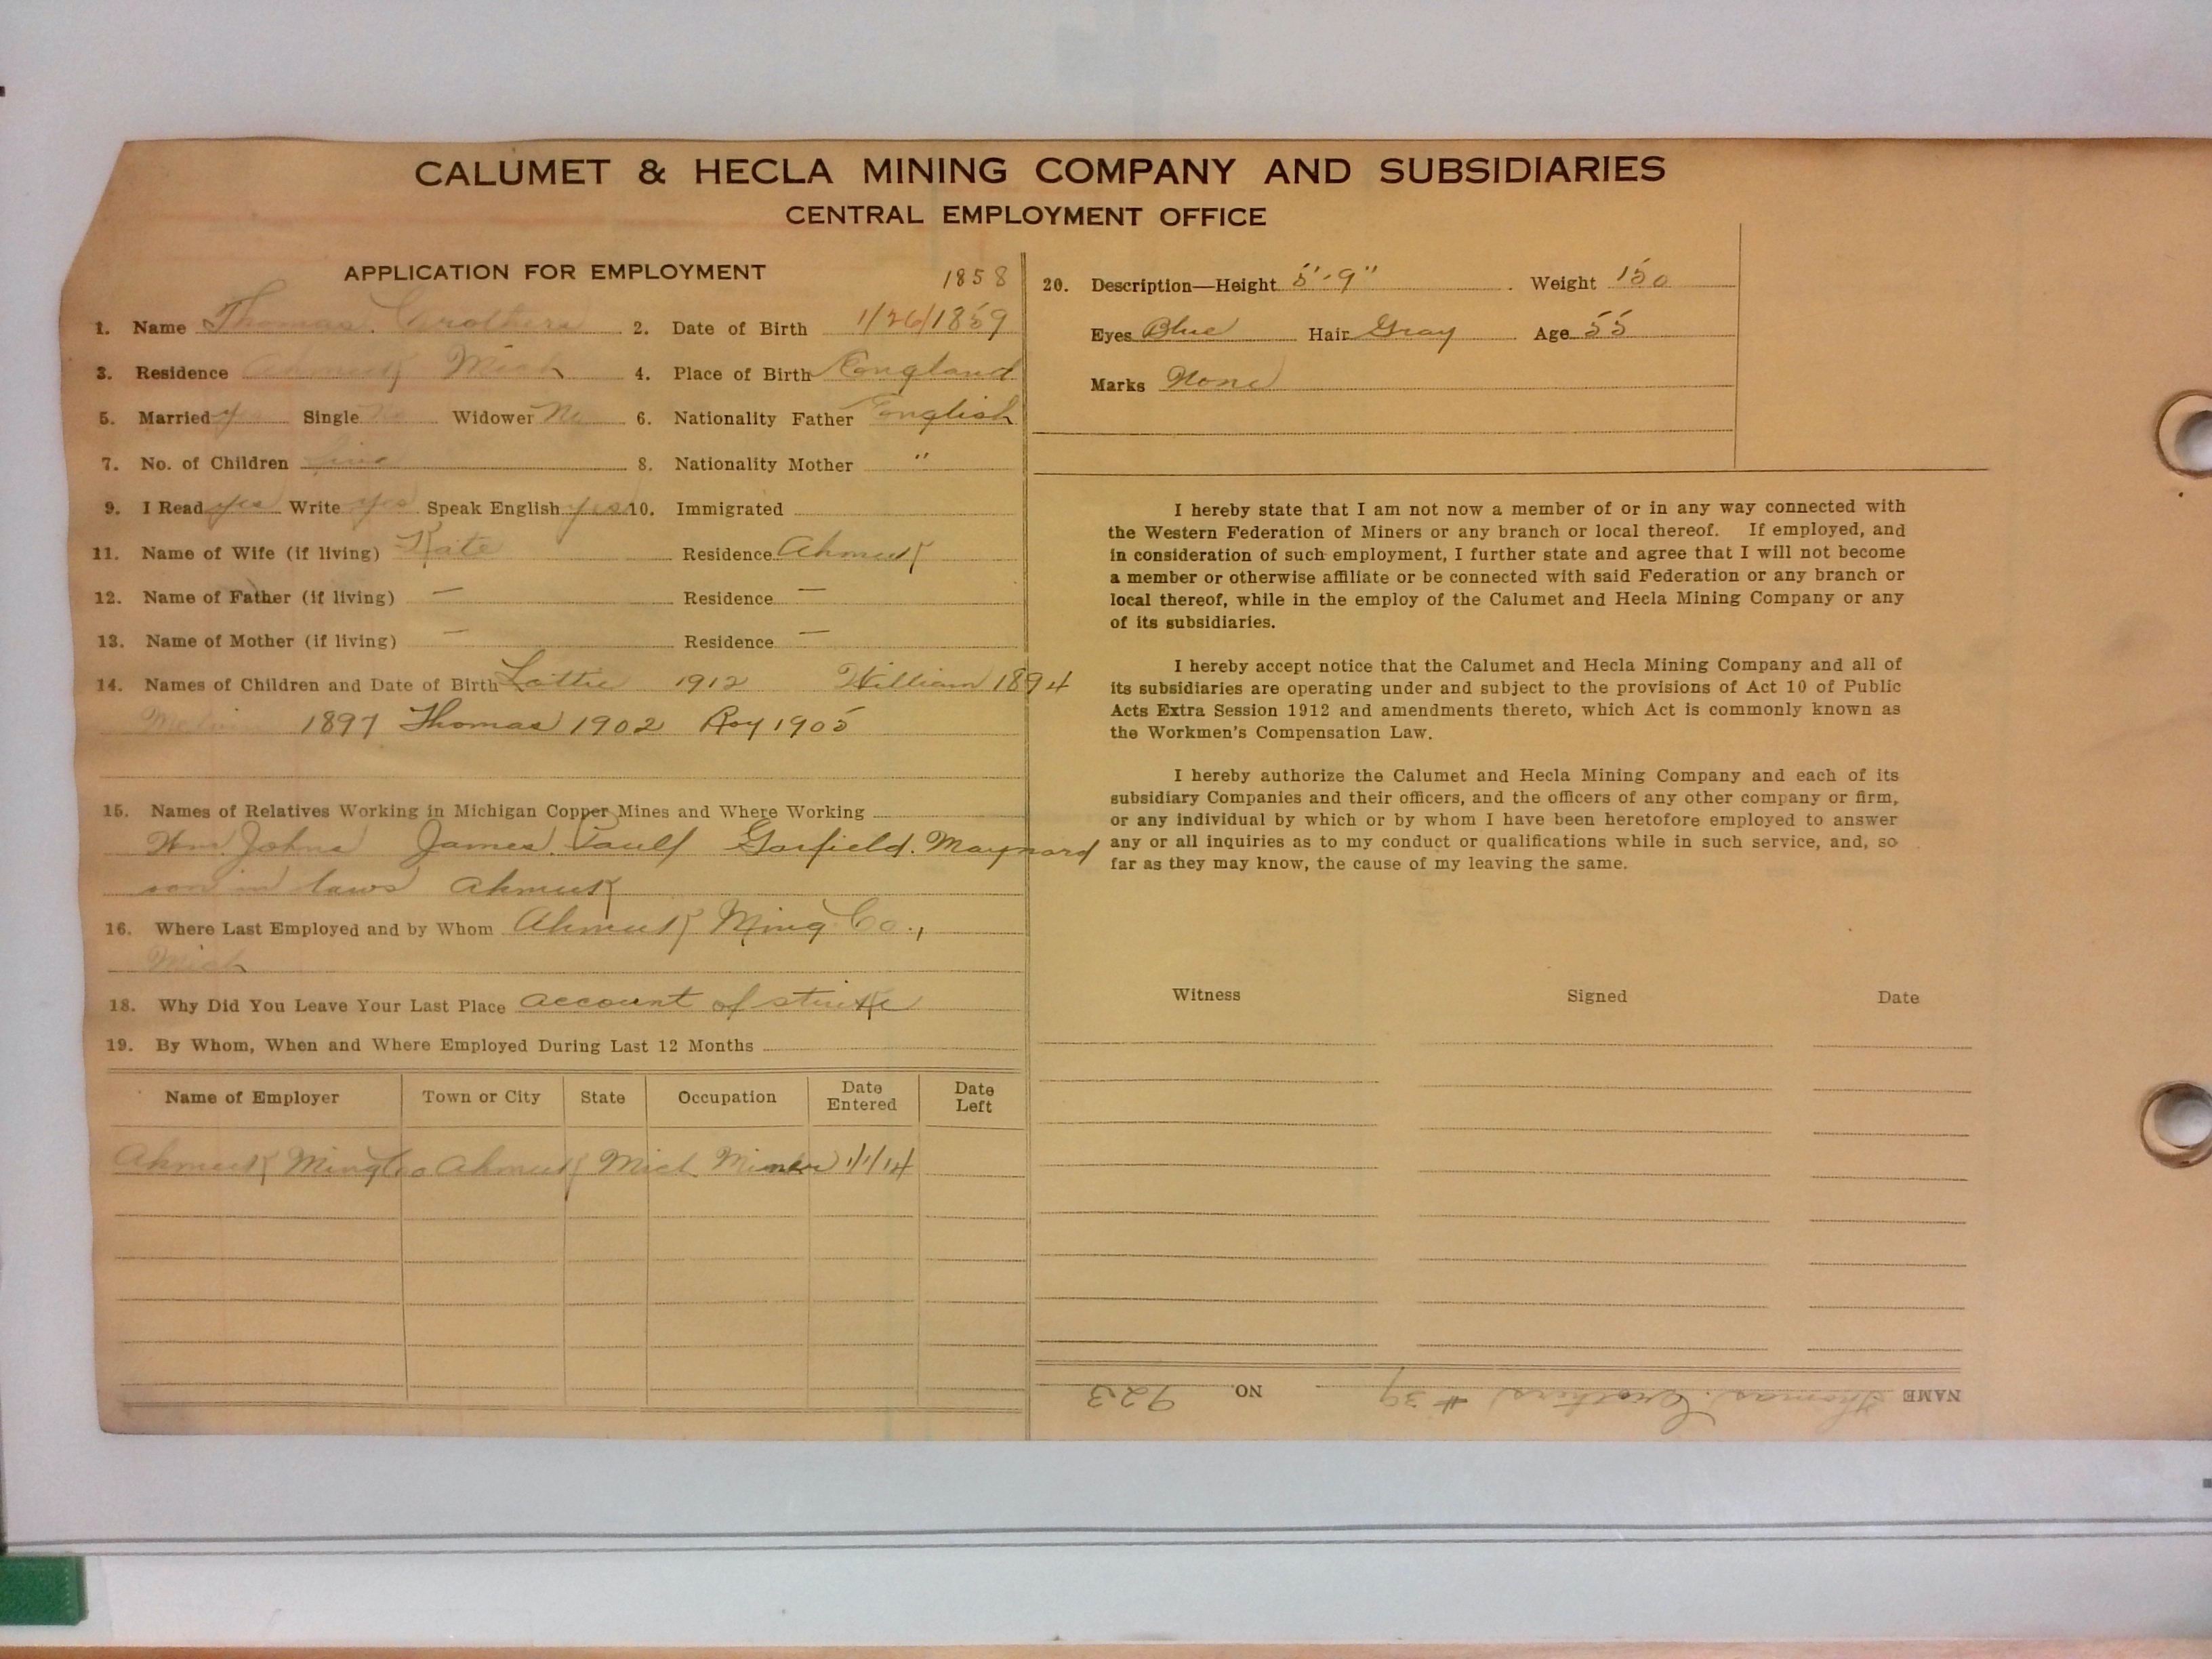 CALUMET & HECLA MINING COMPANY AND SUBSIDIARIES
CENTRAL EMPLOYMENT OFFICE
APPLICATION FOR EMPLOYMENT
1858
1. Name Thomas. Crothers 2. Date of Birth 1/26/1859
3. Residence Ahmeek Mich 4. Place of Birth England
5. Married yes Single No Widower No 6. Nationality Father English
7. No. of Children five 8. Nationality Mother "
9. I Read yes Write yes Speak English yes 10. Immigrated
11. Name of Wife (if living) Kate Residence Ahmeek
12. Name of Father (if living) — Residence —
13. Name of Mother (if living) — Residence —
14. Names of Children and Date of Birth Lottie 1912 William 1894
1897 Thomas 1902 Roy 1905
15. Names of Relatives Working in Michigan Copper Mines and Where Working
Wm. Johns James. Paull Garfield. Maynard
son in laws Ahmeek
16. Where Last Employed and by Whom Ahmeek Ming Co.,
Mich
18. Why Did You Leave Your Last Place account of strike
19. By Whom, When and Where Employed During Last 12 Months
Name of Employer Town or City State Occupation Date Entered Date Left
Ahmeek Ming Co Ahmeek Mich Miner 1/1/14
20. Description—Height 5'-9" Weight 150
Eyes Blue Hair Gray Age 55
Marks None
I hereby state that I am not now a member of or in any way connected with
the Western Federation of Miners or any branch or local thereof. If employed, and
in consideration of such employment, I further state and agree that I will not become
a member or otherwise affiliate or be connected with said Federation or any branch or
local thereof, while in the employ of the Calumet and Hecla Mining Company or any
of its subsidiaries.
I hereby accept notice that the Calumet and Hecla Mining Company and all of
its subsidiaries are operating under and subject to the provisions of Act 10 of Public
Acts Extra Session 1912 and amendments thereto, which Act is commonly known as
the Workmen's Compensation Law.
I hereby authorize the Calumet and Hecla Mining Company and each of its
subsidiary Companies and their officers, and the officers of any other company or firm,
or any individual by which or by whom I have been heretofore employed to answer
any or all inquiries as to my conduct or qualifications while in such service, and, so
far as they may know, the cause of my leaving the same.
Witness Signed Date
NAME Thomas. Crothers # 39 NO. 923